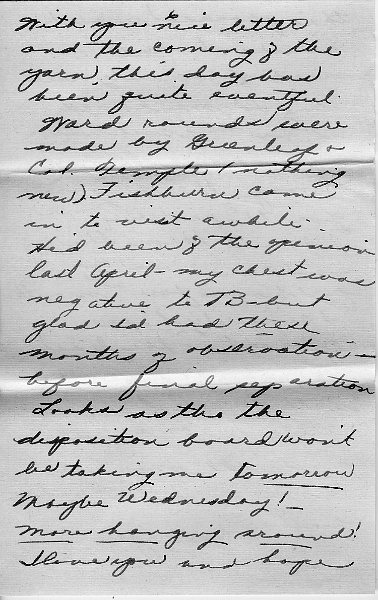 With you nice letter
and the coming of the
yarn, this day has
been quite eventful.
Ward rounds were
made by Greenleaf &
Col. Temple (nothing
new) Fishburn came
in to visit awhile.
He'd been of the opinion
last April - my chest was
negative to TB - but
glad I'd had these
months of observation -
before final separation
Looks as tho the
disposition board won't
be taking me tomorrow
Maybe Wednesday! -
more hanging around!
I love you and hope